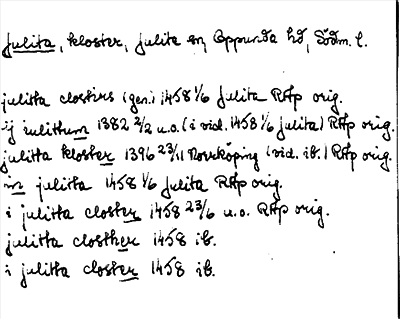 Julita, kloster, Julita sn, Oppunda hd, Södm. l.
julitha closters (gen.) 1458 1/6 Julita RAp orig.
ij iulithum 1382 2/2 u.o. (i vid. 1458 1/6 Julita) RAp orig.
julitta kloster 1396 23/11 Norrköping (vid. ib.) RAp orig.
in julitha 1458 1/6 Julita RAp orig.
i julitta closter 1458 23/6 u.o. RAp orig.
julitta closther 1458 ib.
i julitta closter 1458 ib.